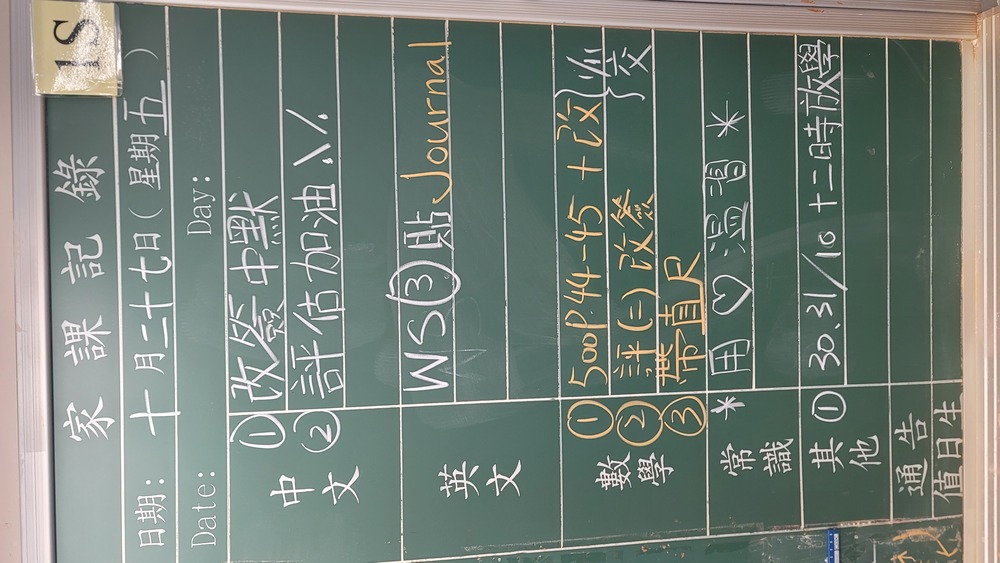 1S
家課記錄
日期: 十月二十七日(星期五)
Date: Day:
中文
① 改簽中默
② 評估加油、\/.
英文
WS③貼 Journal
數學
① 500 P.44-45 + 改}堂交
② 評(二)改簽
③ 帶直尺
常識
* 用♡溫習*
其他
① 30.31/10 十二時放學
通告
值日生